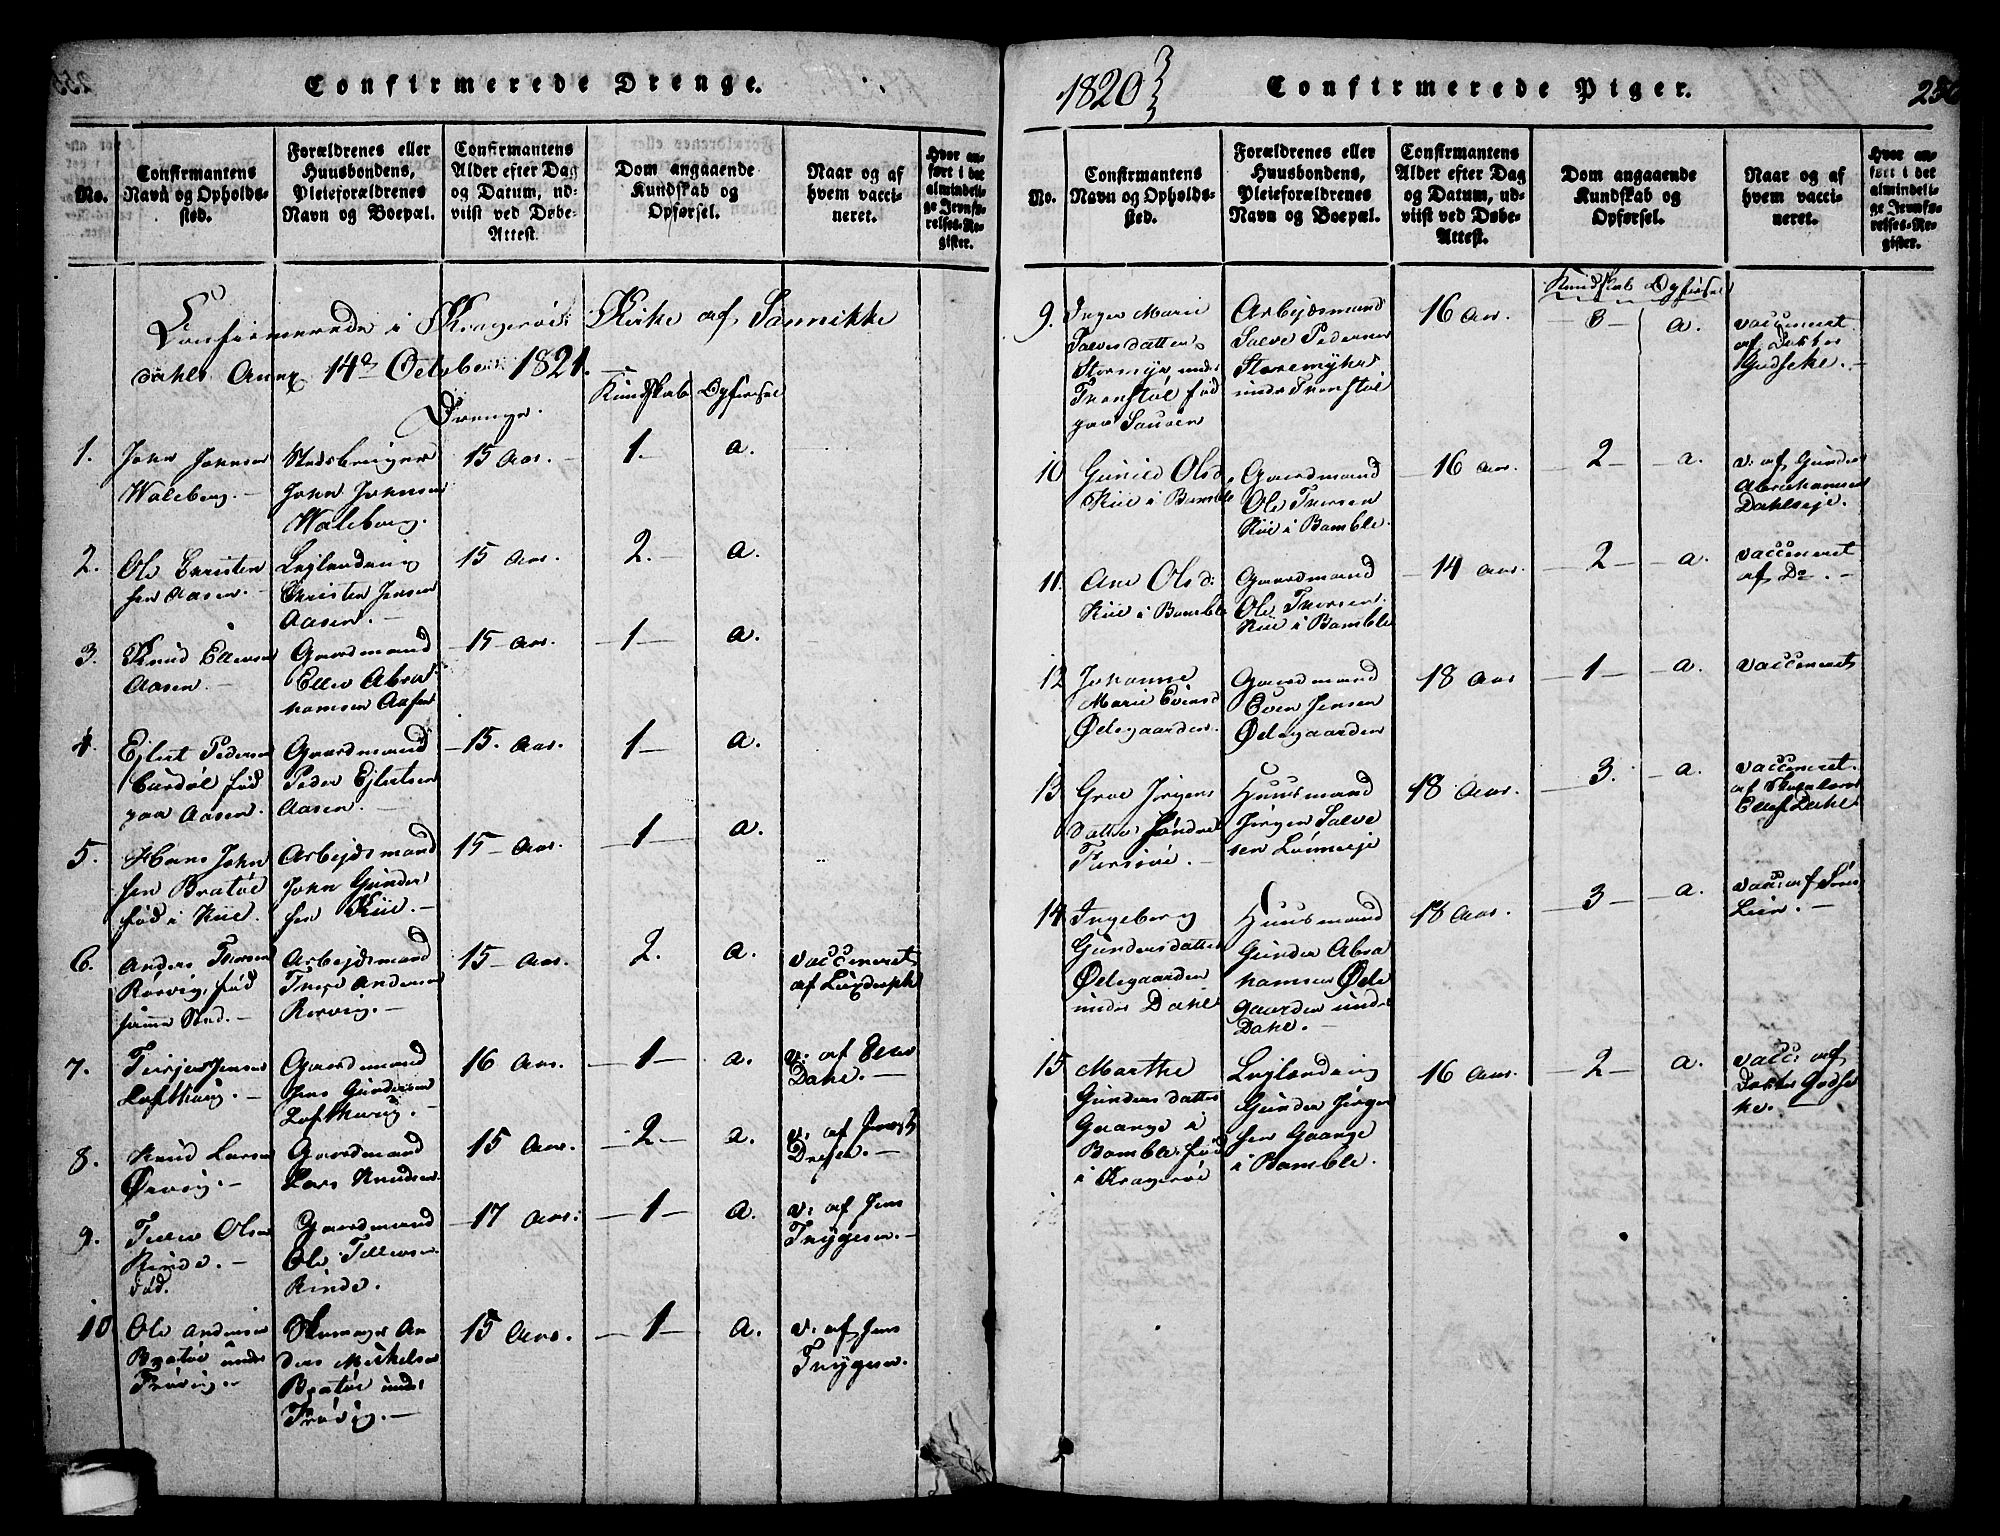 Confirmerede Drenge.
No.
Confirmantens
Navn og Opholds-
sted.
Forældrenes eller
Huusbondens,
Pleieforældrenes
Navn og Boepæl.
Confirmantens
Alder efter Dag
og Datum, ud-
viist ved Døbe-
Attest.
Dom angaaende
Kundskab og
Opførsel.
Naar og af
hvem vacci-
neret.
Hvor an-
ført i det
almindeli-
ge Jevnfø-
relses-Re-
gister.
Confirmerede i Kragerøe Kirke af Sannikke
dahls Annex 14de October 1821.
Kundskab Opførsel
Drenge.
1.
John Johnsen
Waleberg.
Stedsbruger
John Johnsen
Waleberg.
15 Aar.
1.
a.
2.
Ole Christen
sen Aasen.
Leylænding
Christen Jensen
Aasen.
15 Aar.
2.
a.
3.
Knud Ellevsen
Aasen.
Gaardmand
Ellev Abra
hamsen Aasen
15 Aar.
1
a.
4.
Ejlert Pedersen
født
paa Aasen.
Gaardmand
Peder Ejlertsen
Aasen.
15. Aar.
1
a.
5.
Hans John
sen Bratøe
fød i Kiie.
Arbejdsmand
John Gunder
sen Kiie.
15 Aar.
1
a.
6.
Anders Thorsen
Rørvig, fød
samme Sted.
Arbejdsmand
Anders
Rørvig.
15 Aar.
2.
a.
vaccineret
af
7.
Terjer Jensen
Lofthuug.
Gaardmand
Jens Gundersen
Lofthuug.
16 Aar.
1
a.
v: af Ellev
Dahl.
8.
Knud Larsen
Ørvig.
Gaardmand
Lars Knudsen
15 Aar.
2
a.
v: af
9.
Tellev Olsen
Rinde.
død.
Gaardmand
Ole Tellevsen
Rinde.
17 Aar.
1
a.
v: af Jens
Trygesen.
10
Ole Andersen
Bratøe under
Frøvig.
Skomager An
ders Mickelsen
Bratøe under
Frøvig.
15 Aar.
1
a.
v: af Jens
Trygesen.
1820
Confirmerede Piger.
256
No.
Confirmantens
Navn og Opholds-
sted.
Forældrenes eller
Huusbondens,
Pleieforældrenes
Navn og Boepæl.
Confirmantens
Alder efter Dag
og Datum, ud-
viist ved Døbe-
Attest.
Dom angaaende
Kundskab og
Opførsel.
Naar og af
hvem vacci-
neret.
Hvor an-
ført i det
almindeli-
ge Jevnfø-
relses-Re-
gister.
Kundskab Opførsel
9.
Inger Marie
Salvesdatter
Stormyr under
Tronstøl fød
paa Sauøen
Arbejdsmand
Salve Pedersen
Storemyhr
under Tronstøl
16 Aar.
3
a.
vaccineret
af Doktor
Gødeke.
10
Gunild Olsd.
Kiie i Bamble
Gaardmand
Ole Thorsen
Kiie i Bamble.
16 Aar.
2
a.
v. af Gunder
Abrahamsen
Dahlseje.
11.
Ane Olsd:
Kiie i Bamble
Gaardmand
Ole Thorsen
Kiie i Bamble
14 Aar.
2
a.
vaccineret
af Do.
12
Johanne
Marie Evensd
Ødegaarden.
Gaardmand
Even Jensen
Ødegaarden
18 Aar
1
a.
vaccineret
13
Groe Jørgens
datter
Furuøe.
Huusmand
Jørgen Salve
sen
18 Aar.
3.
a.
vaccineret
af
Ellef Dahl
14
Ingeborg
Gundersdatter
Ødegaarden
under Dahl
Huusmand
Gunder Abra
hamsen Øde
gaarden under
Dahl.
18 Aar.
3
a.
vacc: af
Lien.
15
Marthe
Gundersdatter
Gaange i
Bamble, fød
i Kragerøe
Leylænding
Gunder Jørgen
sen Gaange
i Bamble.
16 Aar.
2
a.
vacc: af
Doktor Gødse
ke.